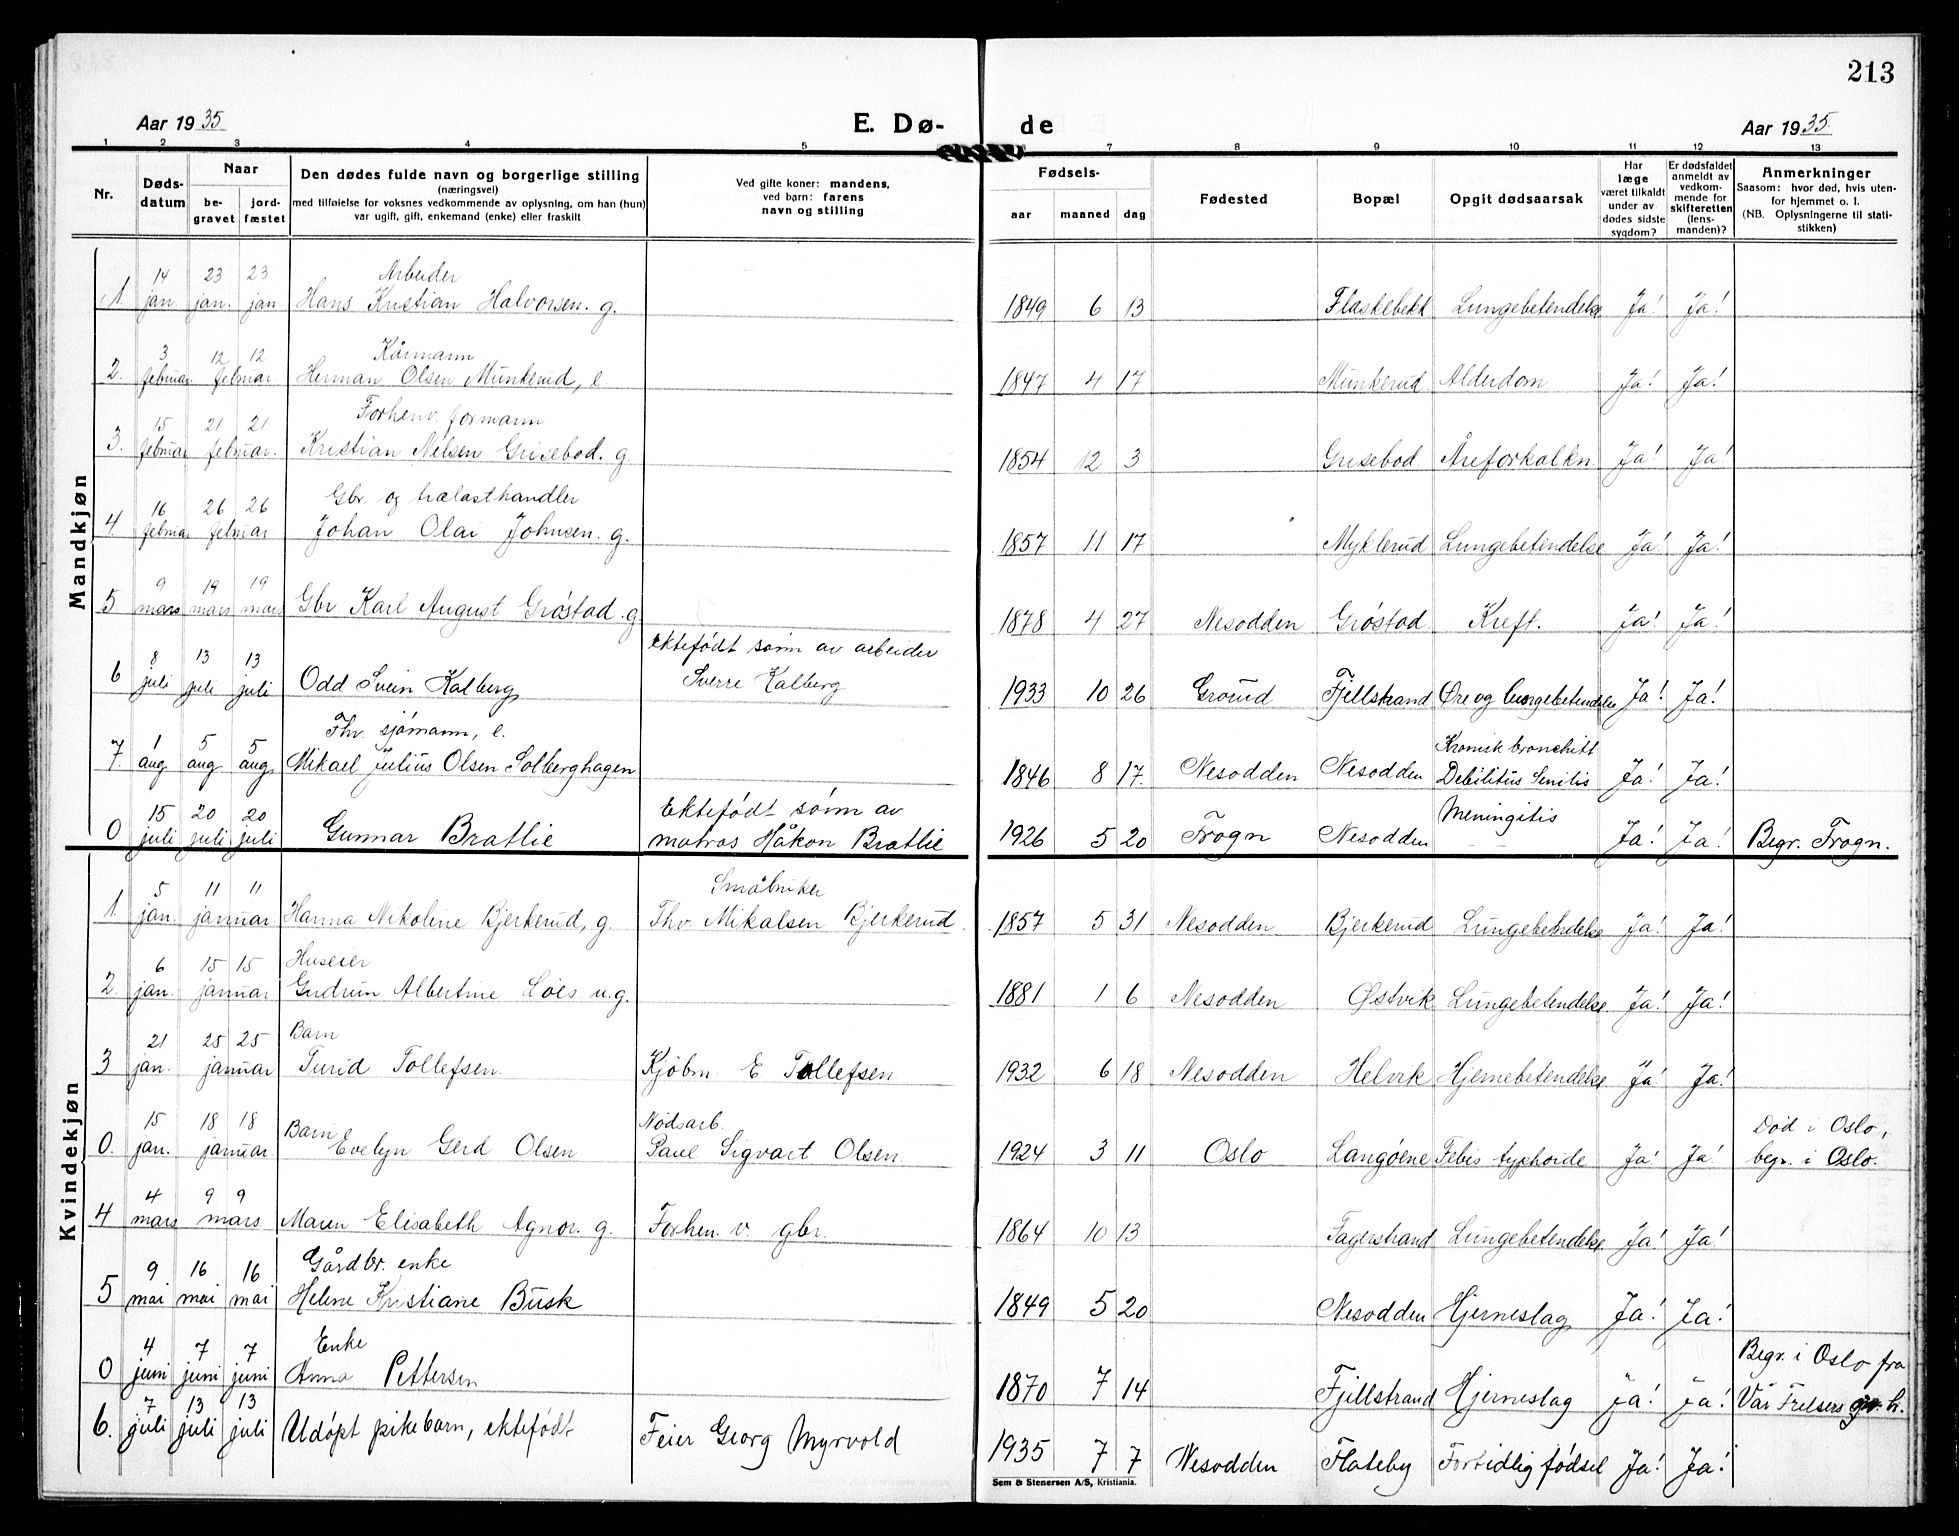 213
Aar 1935 E. Dø- de Aar 1935.
1 2 3 4 5 6 7 8 9 10 11 12 13
Nr. | Døds-datum | Naar be-gravet | Naar jord-fæstet | Den dødes fulde navn og borgerlige stilling (næringsvei) med tilføielse for voksnes vedkommende av oplysning, om han (hun) var ugift, gift, enkemand (enke) eller fraskilt | Ved gifte koner: mandens, ved barn: farens navn og stilling | Fødsels- aar | maaned | dag | Fødested | Bopæl | Opgit dødsaarsak | Har læge været tilkaldt under av dødes sidste sygdom? | Er dødsfaldet anmeldt av vedkom-mende for skifteretten (lens-manden)? | Anmerkninger Saasom: hvor død, hvis uten-for hjemmet o. l. (NB. Oplysningerne til stati-stikken)
Mandkjøn
1. | 14 jan. | 23 jan. | 23 jan. | Arbeider Hans Kristian Halvorsen. g. | 1849 | 6 | 13 | Flaskebekk | Lungebetendelse | Ja! | Ja!
2. | 3 februar | 12 | 12 februar | Kårmann Herman Olsen Munkerud, e. | 1847 | 4 | 17 | Munkerud | Alderdom | Ja! | Ja!
3. | 15 februar | 21 | 21 februar. | Forhenv. formann Kristian Nilsen Grisebod. g. | 1854 | 12 | 3 | Grisebod | Åreforkalkn. | Ja! | Ja!
4. | 16 februar | 26 | 26 februar | Gbr. og trælasthandler Johan Olai Johnsen. g. | 1857 | 11 | 17 | Myklerud | Lungebetendelse | Ja! | Ja!
5 | 9 mars | 19 mars | 19 mars | Gbr Karl August Grøstad. g | 1878 | 4 | 27 | Nesodden | Grøstad. | Kreft. | Ja! | Ja!
6 | 8 juli | 13 juli | 13 juli | Odd Svein Kalberg | Ektefødt sønn av arbeider Sverre Kalberg | 1933 | 10 | 26 | Fjellstrand | Øre og lungebetendelse | Ja! | Ja!
7. | 1 aug | 5 aug | 5 aug | Fhv. sjømann, e. Mikael Julius Olsen Solberghagen | 1846 | 8 | 17. | Nesodden | Nesodden | Kronisk bronchitt Debilitus Senilis | Ja! | Ja!
0 | 15 juli | 20 juli | 20 juli | Gunnar Bratlie | Ektefødt sønn av matros Håkon Bratlie | 1926 | 5 | 20 | Frogn | Nesodden | Meningitis | Ja! | Ja! | Begr. Frogn.
Kvindekjøn
1. | 5 jan. | 11 | 11 januar | Hanna Nikoline Bjerkerud, g. | Småbruker Thv. Mikalsen Bjerkerud. | 1857 | 5 | 31 | Nesodden | Bjerkerud | Lungebetendelse | Ja! | Ja!
2. | 6 jan. | 15 | 15 januar | Huseier Gudrun Albertine Løes u.g. | 1881 | 1 | 6 | Nesodden | Østvik | Lungebetendelse. | Ja! | Ja!
3 | 21 jan. | 25 | 25 januar | Barn Turid Tollefsen. | Kjøbm. E Tollefsen | 1932 | 6 | 18 | Nesodden | Helvik | Hjernebetendelse | Ja! | Ja!
0. | 15 jan. | 18 | 18 januar. | Barn Evelyn Gerd Olsen | Nødsarb. Paul Sigvart Olsen. | 1924 | 3 | 11 | Oslo | Langøene | Febis typhoide | Ja! | Ja! | Død i Oslo, begr. i Oslo.
4 | 4 mars | 9 | 9 mars | Maren Elisabeth Agnor. g. | Forhen. v. gbr. | 1864 | 10 | 13 | Fagerstrand | Lungebetendelse. | Ja! | Ja!
5 | 9 mai | 16 mai | 16 mai | Gårdbr. enke Helene Kristiane Busk | 1849 | 5 | 20 | Nesodden | Hjerneslag | Ja! | Ja!
0 | 4 juni | 7 juni | 7 juni | Enke Anna Pettersen | 1870 | 7 | 14 | Fjellstrand | Hjerneslag | Ja! | Ja! | Begr. i Oslo fra Vår Frelsers gr. l.
6. | 7 juli | 13 juli | 13 juli | Udøpt pikebarn, ektefødt | Feier Georg Myrvold | 1935 | 7 | 7 | Nesodden | Flateby | Fortidlig fødsel | Ja! | Ja!
Sem & Stenersen A/S, Kristiania.